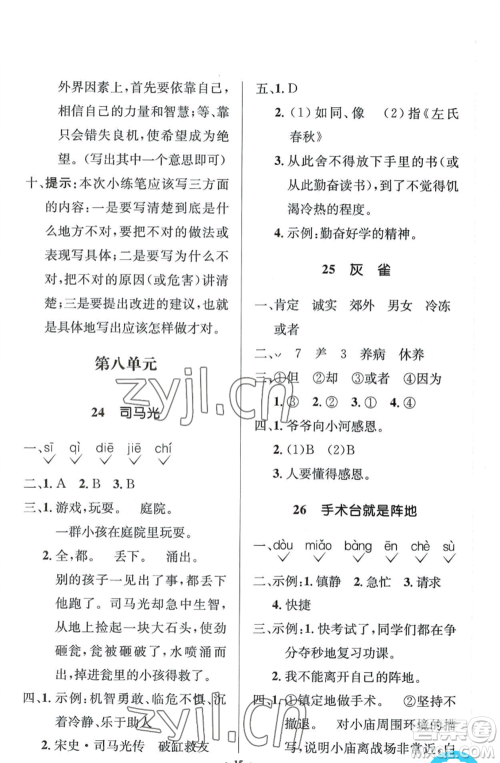 外界因素上，首先要依靠自己，
相信自己的力量和智慧；等、靠
只会错失良机，使希望成为绝
望。（写出其中一个意思即可）
十、提示：本次小练笔应该写三方面
的内容：一是要写清楚是什么
地方不对，要把不对的做法或
表现写具体；二是要写为什么不
对，把不对的原因（或危害）讲清
楚；三是提出改进的建议，也就
是具体地写出应该怎样做才对。
第八单元
24 司马光
一、sī qì diē jiē chí
二、1. A 2. B 3. B
三、1. 游戏，玩耍。 庭院。
一群小孩在庭院里玩耍。
2. 全，都。 丢下。 涌出。
别的孩子一见出事了，丢下
他都跑了。司马光却急中生智，
从地上捡起一块大石头，使劲
砸瓮。瓮被砸破了，水喷涌而
出，掉进瓮里的小孩得救了。
四、1. 示例：机智勇敢、临危不惧、沉
着冷静、乐于助人
2. 宋史·司马光传 破缸救友
五、1. D
2. （1）如同、像 （2）指《左氏
春秋》
3. 从此舍不得放下手里的书（或
从此勤奋读书），到了不觉得饥
渴冷热的程度。
4. 示例：勤奋好学的精神。
25 灰雀
一、肯定 诚实 郊外 男女 冷冻
或者
二、 7 养 3 养病 休养
三、①但 ②却 ③因此 ④还
1. ③ ② ① ④
四、1. 爷爷向小河感恩。
2. （1）B （2）B
3. 人要懂得感恩。
26 手术台就是阵地
一、dòu miǎo bàng chè sù
二、示例：1. 镇静 2. 急忙 3. 请求
4. 快捷
三、示例：1. 快考试了，同学们都在分
争夺秒地复习功课。
2. 我不能离开自己的阵地。
四、1. ①镇定地做手术。 ②坚持不
下火线。
2. 写小庙周围环境的描
写，说明小庙离战场非常近，白
15
zyjl.cn